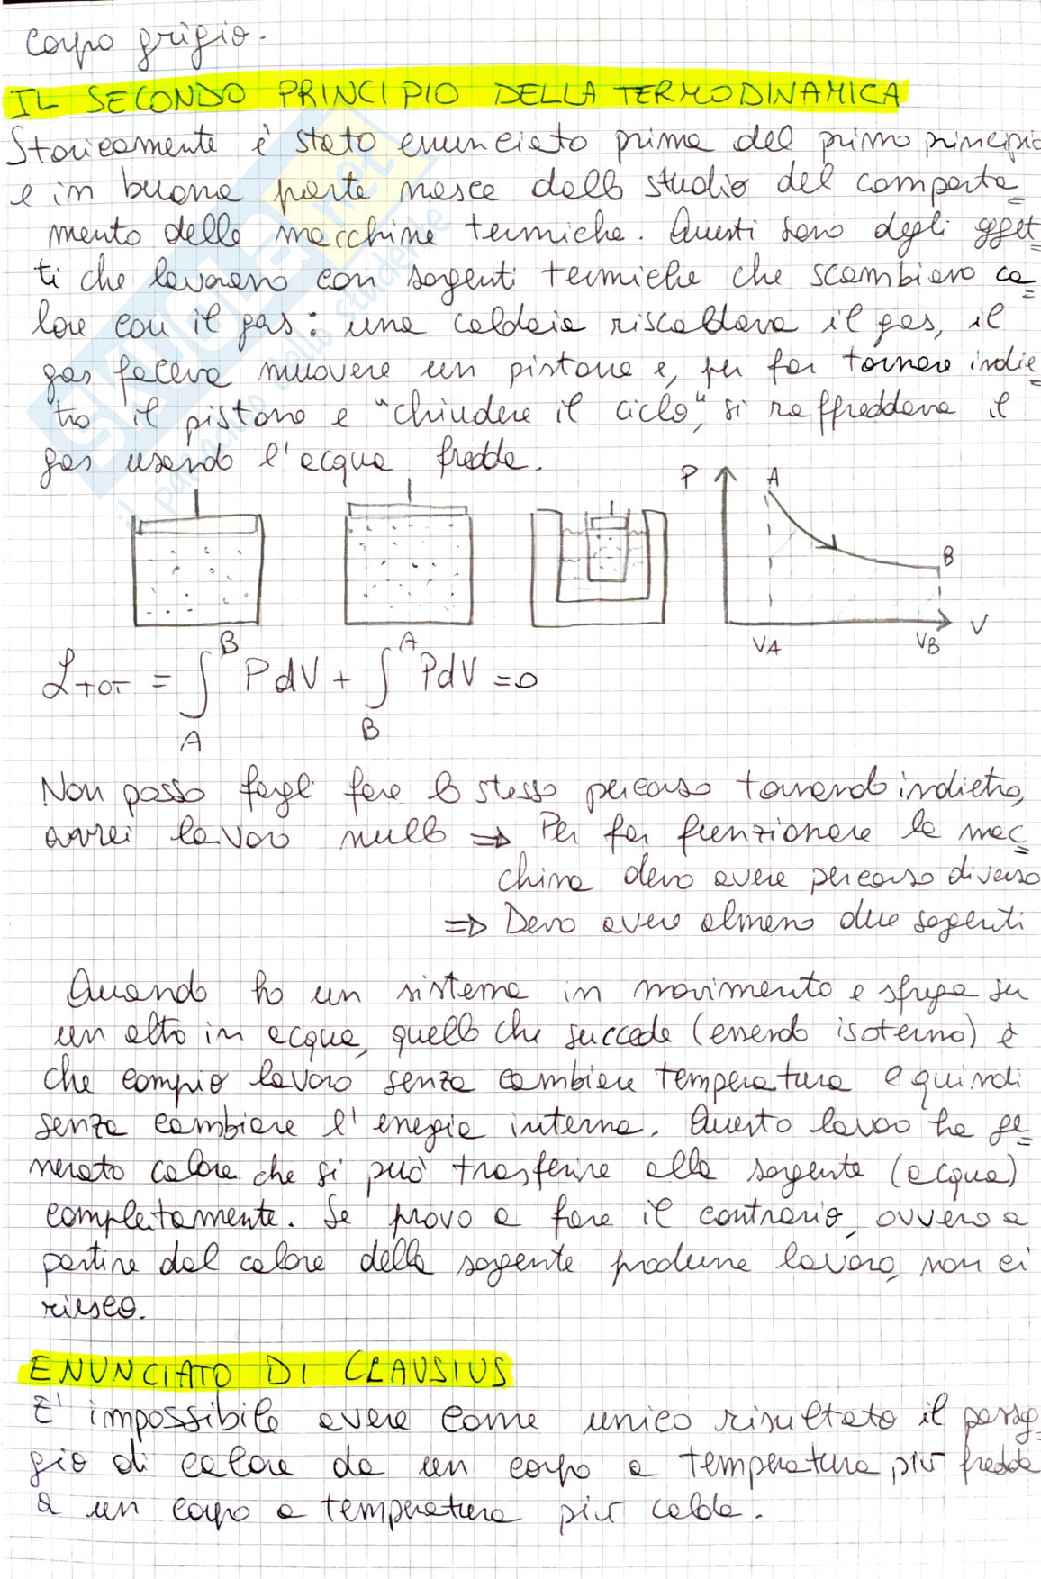 corpo grigio.
IL SECONDO PRINCIPIO DELLA TERMODINAMICA
Storicamente è stato enunciato prima del primo principio
e in buona parte nasce dallo studio del comporta=
mento delle macchine termiche. Questi sono degli ogget=
ti che lavorano con sorgenti termiche che scambiano ca=
lore con il gas: una caldaia riscaldava il gas, il
gas faceva muovere un pistone e, per far tornare indie=
tro il pistone e "chiudere il ciclo", si raffreddava il
gas usando l'acqua fredda.
P A B V VA VB
L TOT = ∫_A^B PdV + ∫_B^A PdV = 0
Non posso fargli fare lo stesso percorso tornando indietro,
avrei lavoro nullo ⇒ Per far funzionare la mac=
china devo avere percorso diverso
⇒ Devo avere almeno due sorgenti
Quando ho un sistema in movimento e sfrega su
un altro in acqua, quello che succede (essendo isotermo) è
che compio lavoro senza cambiare temperatura e quindi
senza cambiare l'energia interna. Questo lavoro ha ge=
nerato calore che si può trasferire alla sorgente (acqua)
completamente. Se provo a fare il contrario, ovvero a
partire dal calore della sorgente produrre lavoro, non ci
riesco.
ENUNCIATO DI CLAUSIUS
E' impossibile avere come unico risultato il passag=
gio di calore da un corpo a temperatura più fredda
a un corpo a temperatura più calda.
SKUOLA.net